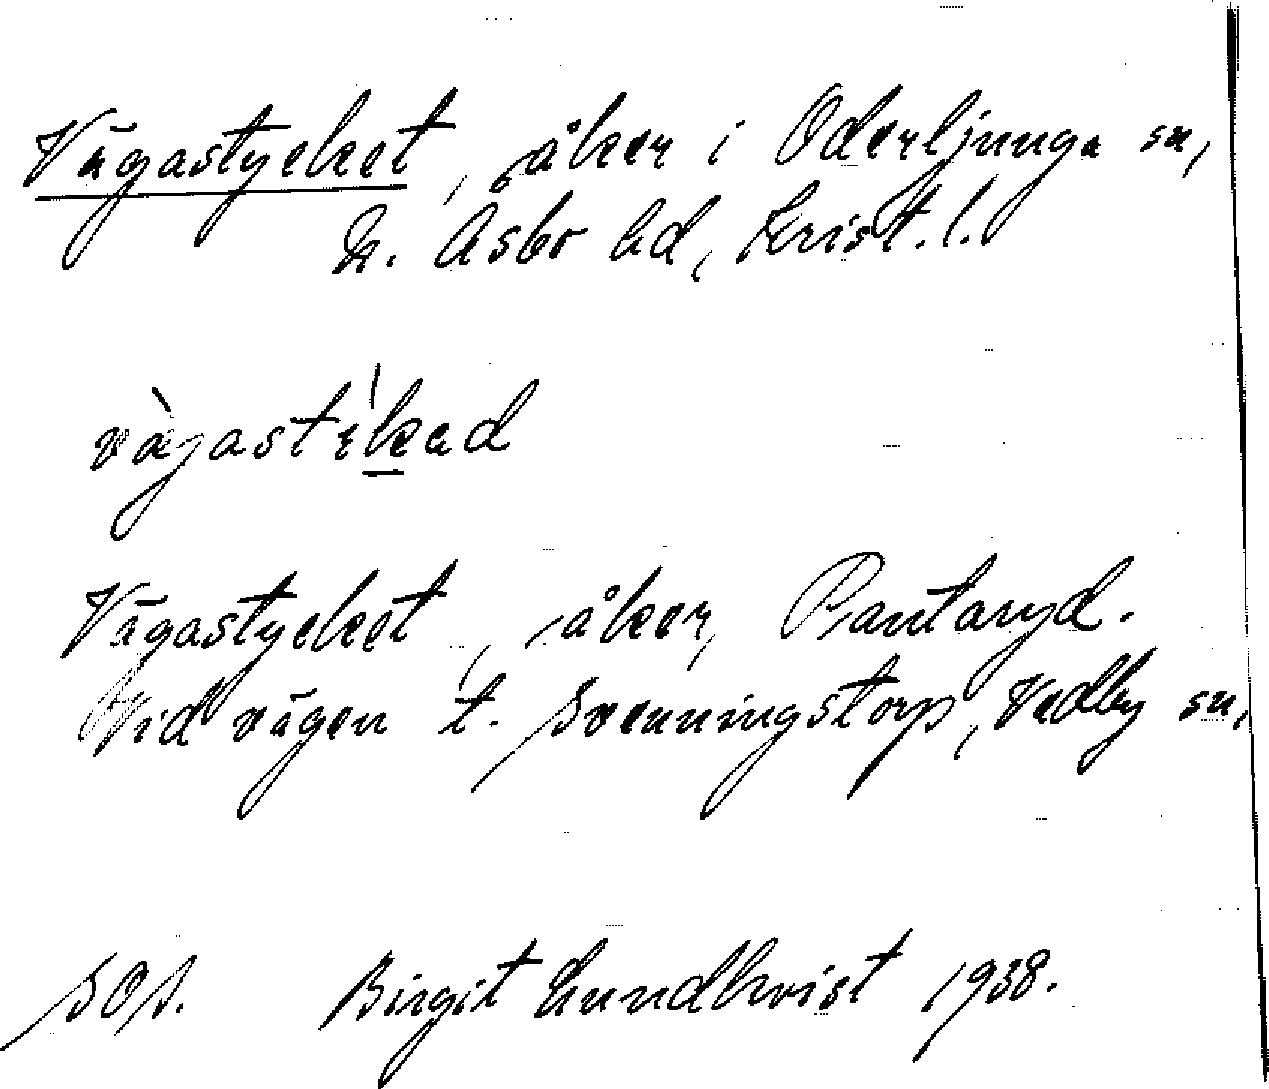 Vägastycket, åker i Oderljunga sn,
N. Åsbo hd, Krist. l.
vägastikad
Vägastycket, åker, Rantaryd.
Vid vägen t. Svenningstorp, Vedby sn,
SOS. Birgit Lundkvist 1938.